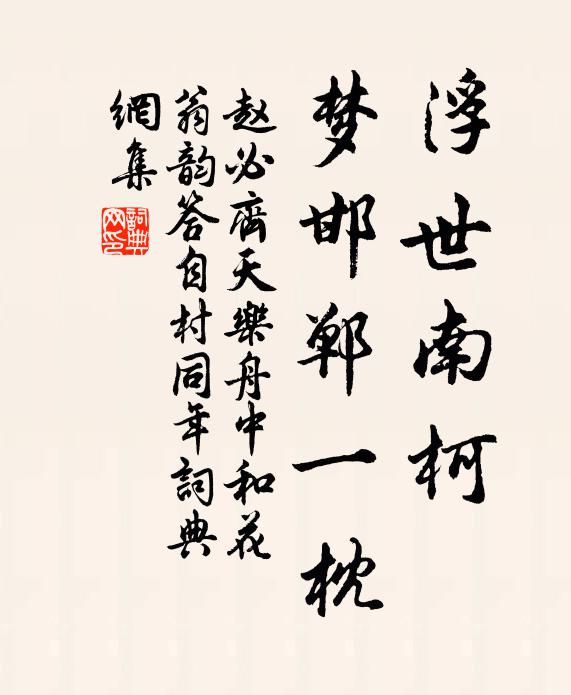 浮世南柯
梦邯郸一枕
赵必𤩪天樂舟中和花
翁韵答自村同年詞典
網集
詞典网印